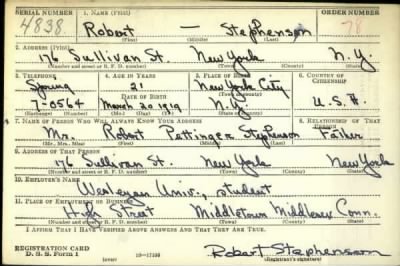 SERIAL NUMBER 1. NAME (Print) ORDER NUMBER
4838 Robert — Stephenson 78
(First) (Middle) (Last)
2. ADDRESS (Print)
176 Sullivan St. New York N.Y.
(Number and street or R. F. D. number) (Town) (County) (State)
3. TELEPHONE 4. AGE IN YEARS 5. PLACE OF BIRTH 6. COUNTRY OF CITIZENSHIP
Spring 21 New York City
DATE OF BIRTH (Town or county)
7-0564 March 20 1919 N.Y. U.S.A.
(Exchange) (Number) (Mo.) (Day) (Yr.) (State or country)
7. NAME OF PERSON WHO WILL ALWAYS KNOW YOUR ADDRESS 8. RELATIONSHIP OF THAT PERSON
Mr. Robert Pottinger Stephenson Father
(Mr., Mrs., Miss) (First) (Middle) (Last)
9. ADDRESS OF THAT PERSON
176 Sullivan St. New York New York
(Number and street or R. F. D. number) (Town) (County) (State)
10. EMPLOYER'S NAME
Wesleyan Univ., student
11. PLACE OF EMPLOYMENT OR BUSINESS
High Street Middletown Middlesex Conn.
(Number and street or R. F. D. number) (Town) (County) (State)
I AFFIRM THAT I HAVE VERIFIED ABOVE ANSWERS AND THAT THEY ARE TRUE.
REGISTRATION CARD
D. S. S. Form 1 (over) Robert Stephenson
(Registrant's signature)